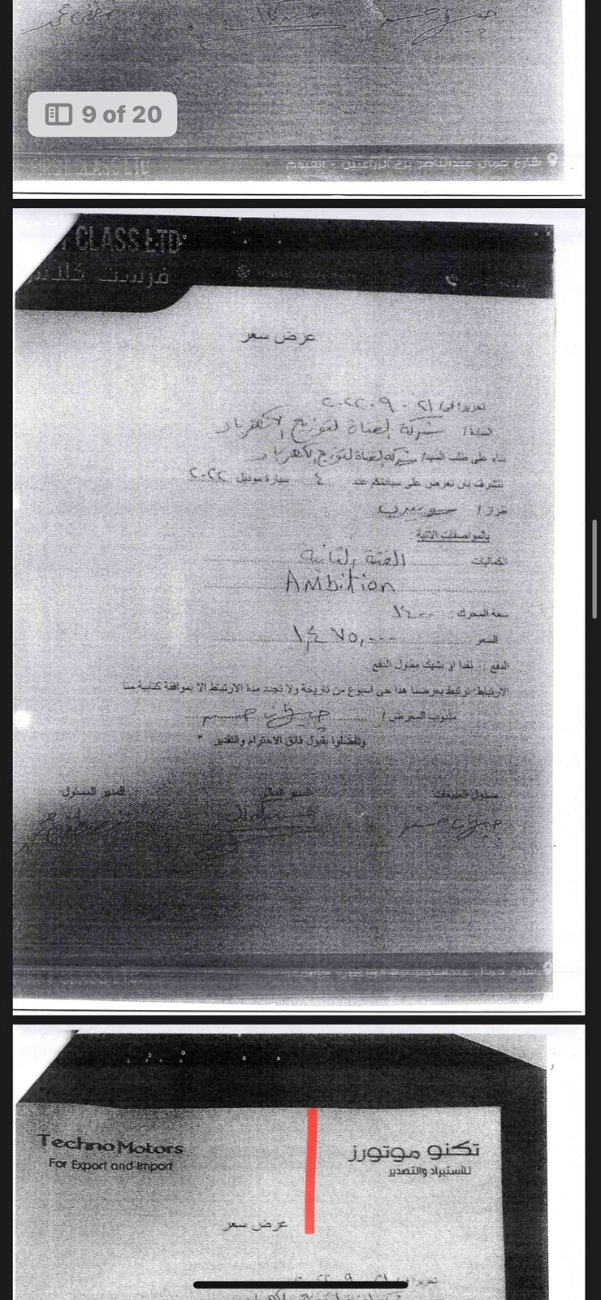 9 of 20
FIRST CLASS LTD
شارع جمال عبدالناصر - برج الزراعيين - الفيوم
CLASS LTD
فرست كلاس
عرض سعر
تحريرا في / ٢١ - ٩ - ٢٠٢٢
السادة / شركة القناة لتوزيع الكهرباء
بناء على طلب السيد / شركة القناة لتوزيع الكهرباء
نتشرف بان نعرض على سيادتكم عدد ٤ سيارة موديل ٢٠٢٢
طراز /
بالمواصفات الاتية
الكماليات الفئة الثانية
Ambition
سعة المحرك ١٤٠٠
السعر ١,٤٧٥,٠٠٠
الدفع : نقدا او بشيك مقبول الدفع
الارتباط: نرتبط بعرضنا هذا حتى أسبوع من تاريخة ولا تجدد مدة الارتباط الا بموافقة كتابية منا
مندوب المعرض /
وتفضلوا بقبول فائق الاحترام والتقدير "
مسئول المبيعات المدير المالى المدير المسئول
شارع جمال عبدالناصر
TechnoMotors
For Export and Import
تكنو موتورز
للأستيراد والتصدير
عرض سعر
تحريرا في / ٢١ ٩ ٢٠٢٢